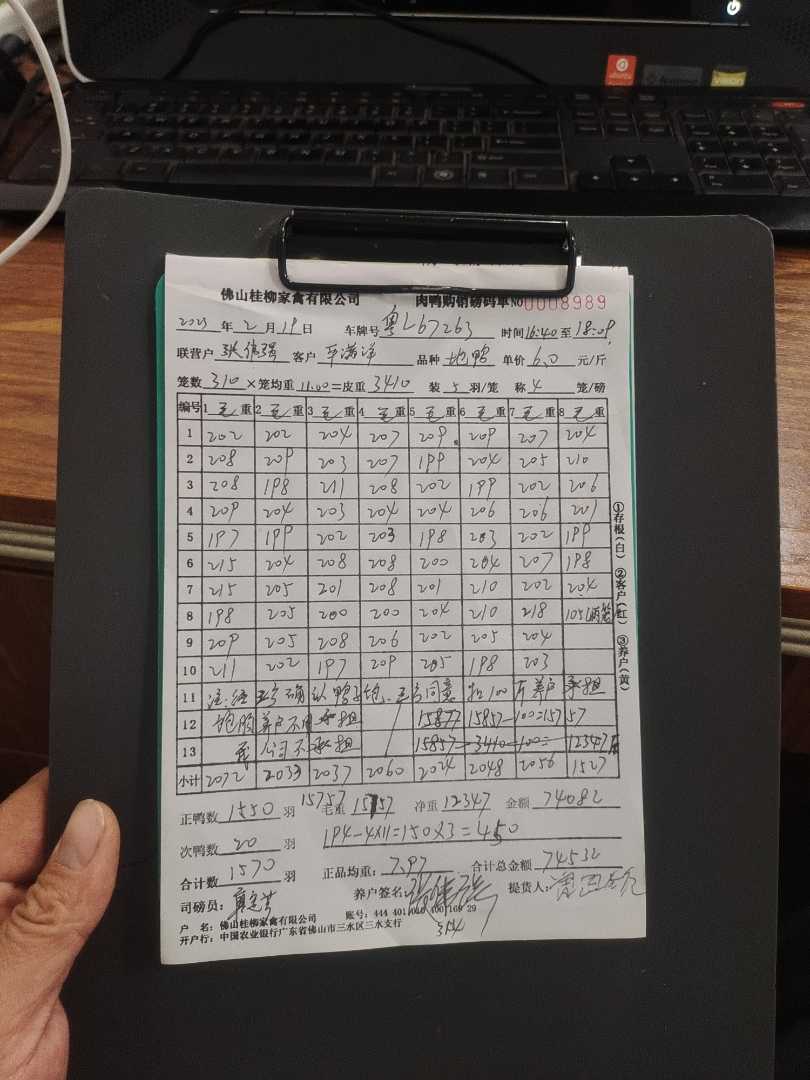 ubuntu
佛山桂柳家禽有限公司 肉鸭购销磅码单 NO 0008989
2023 年 2 月 19 日 车牌号 粤L67263 时间 16:40 至 18:09
联营户 张伟强 客户 品种 地鸭 单价 6.0 元/斤
笼数 310 × 笼均重 11.00 = 皮重 3410 装 5 羽/笼 称 4 笼/磅
编号 1 毛重 2 毛重 3 毛重 4 毛重 5 毛重 6 毛重 7 毛重 8 毛重
1 202 202 204 207 209 209 207 204
2 208 209 203 207 199 204 205 210
3 208 198 211 208 202 199 202 206
4 209 204 203 204 204 206 206 201
5 197 199 202 203 198 203 202 199
6 215 204 208 208 200 204 207 198
7 215 205 201 208 201 210 202 204
8 198 205 200 200 204 210 218 105(两笼
9 209 205 208 206 202 205 204
10 211 202 197 209 205 198 203
11 注:经 确认鸭子饱. 同意 扣100斤养户承担
12 饱肠养户不用承担 15857 15857-100=15757
13 公司不承担 15857-3410-100= 12347斤
小计 2072 2033 2037 2060 2024 2048 2056 1527
正鸭数 1550 羽 15757 毛重 15757 净重 12347 金额 74082
次鸭数 20 羽 194-4×11=150×3=450
合计数 1570 羽 正品均重: 7.97 合计总金额 74532
司磅员: 养户签名: 张伟强 提货人:
户 名: 佛山桂柳家禽有限公司 账号: 444 401 040 400 169 29
开户行: 中国农业银行广东省佛山市三水区三水支行
①存根(白) ②客户(红) ③养户(黄)